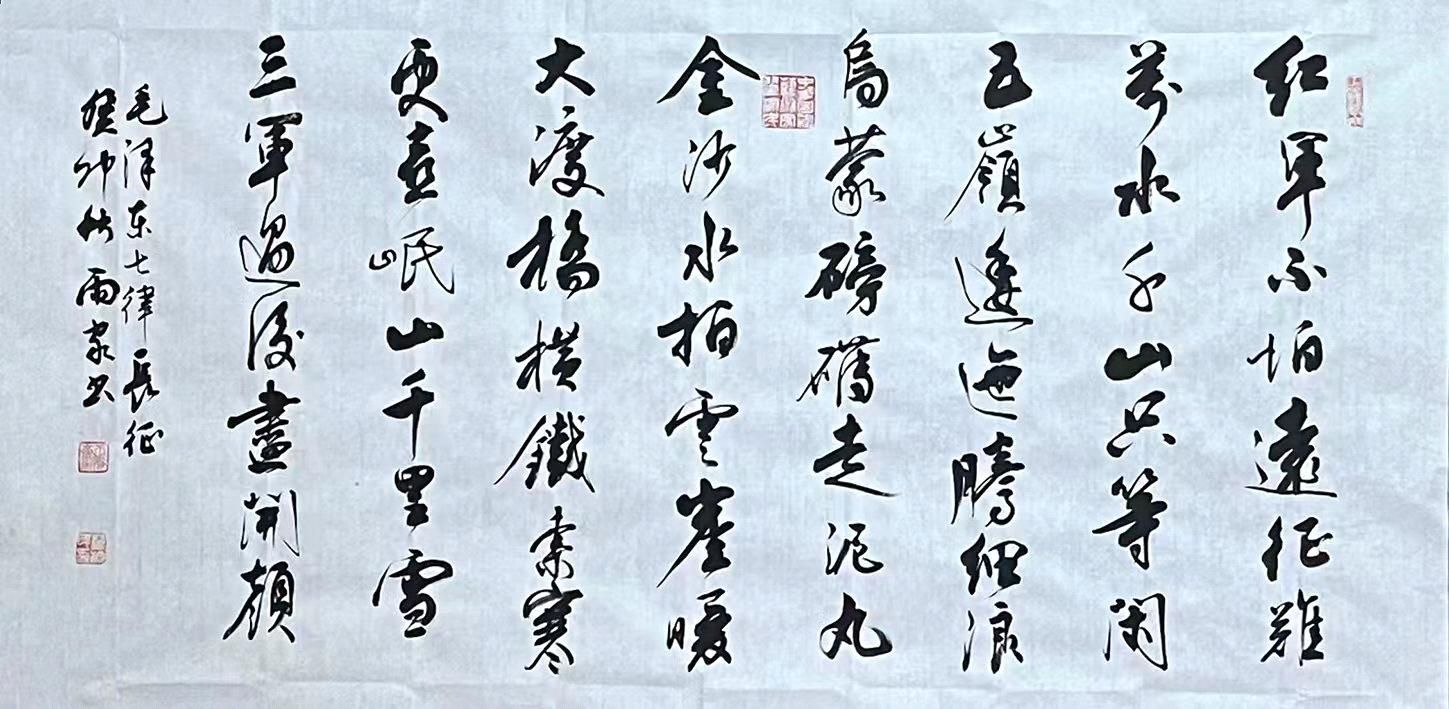 紅軍不怕遠征難
萬水千山只等閑
五嶺逶迤騰細浪
烏蒙磅礴走泥丸
金沙水拍雲崖暖
大渡橋橫鐵索寒
更喜岷山千里雪
三軍過後盡開顏
毛澤東七律長征
癸卯秋雨家書